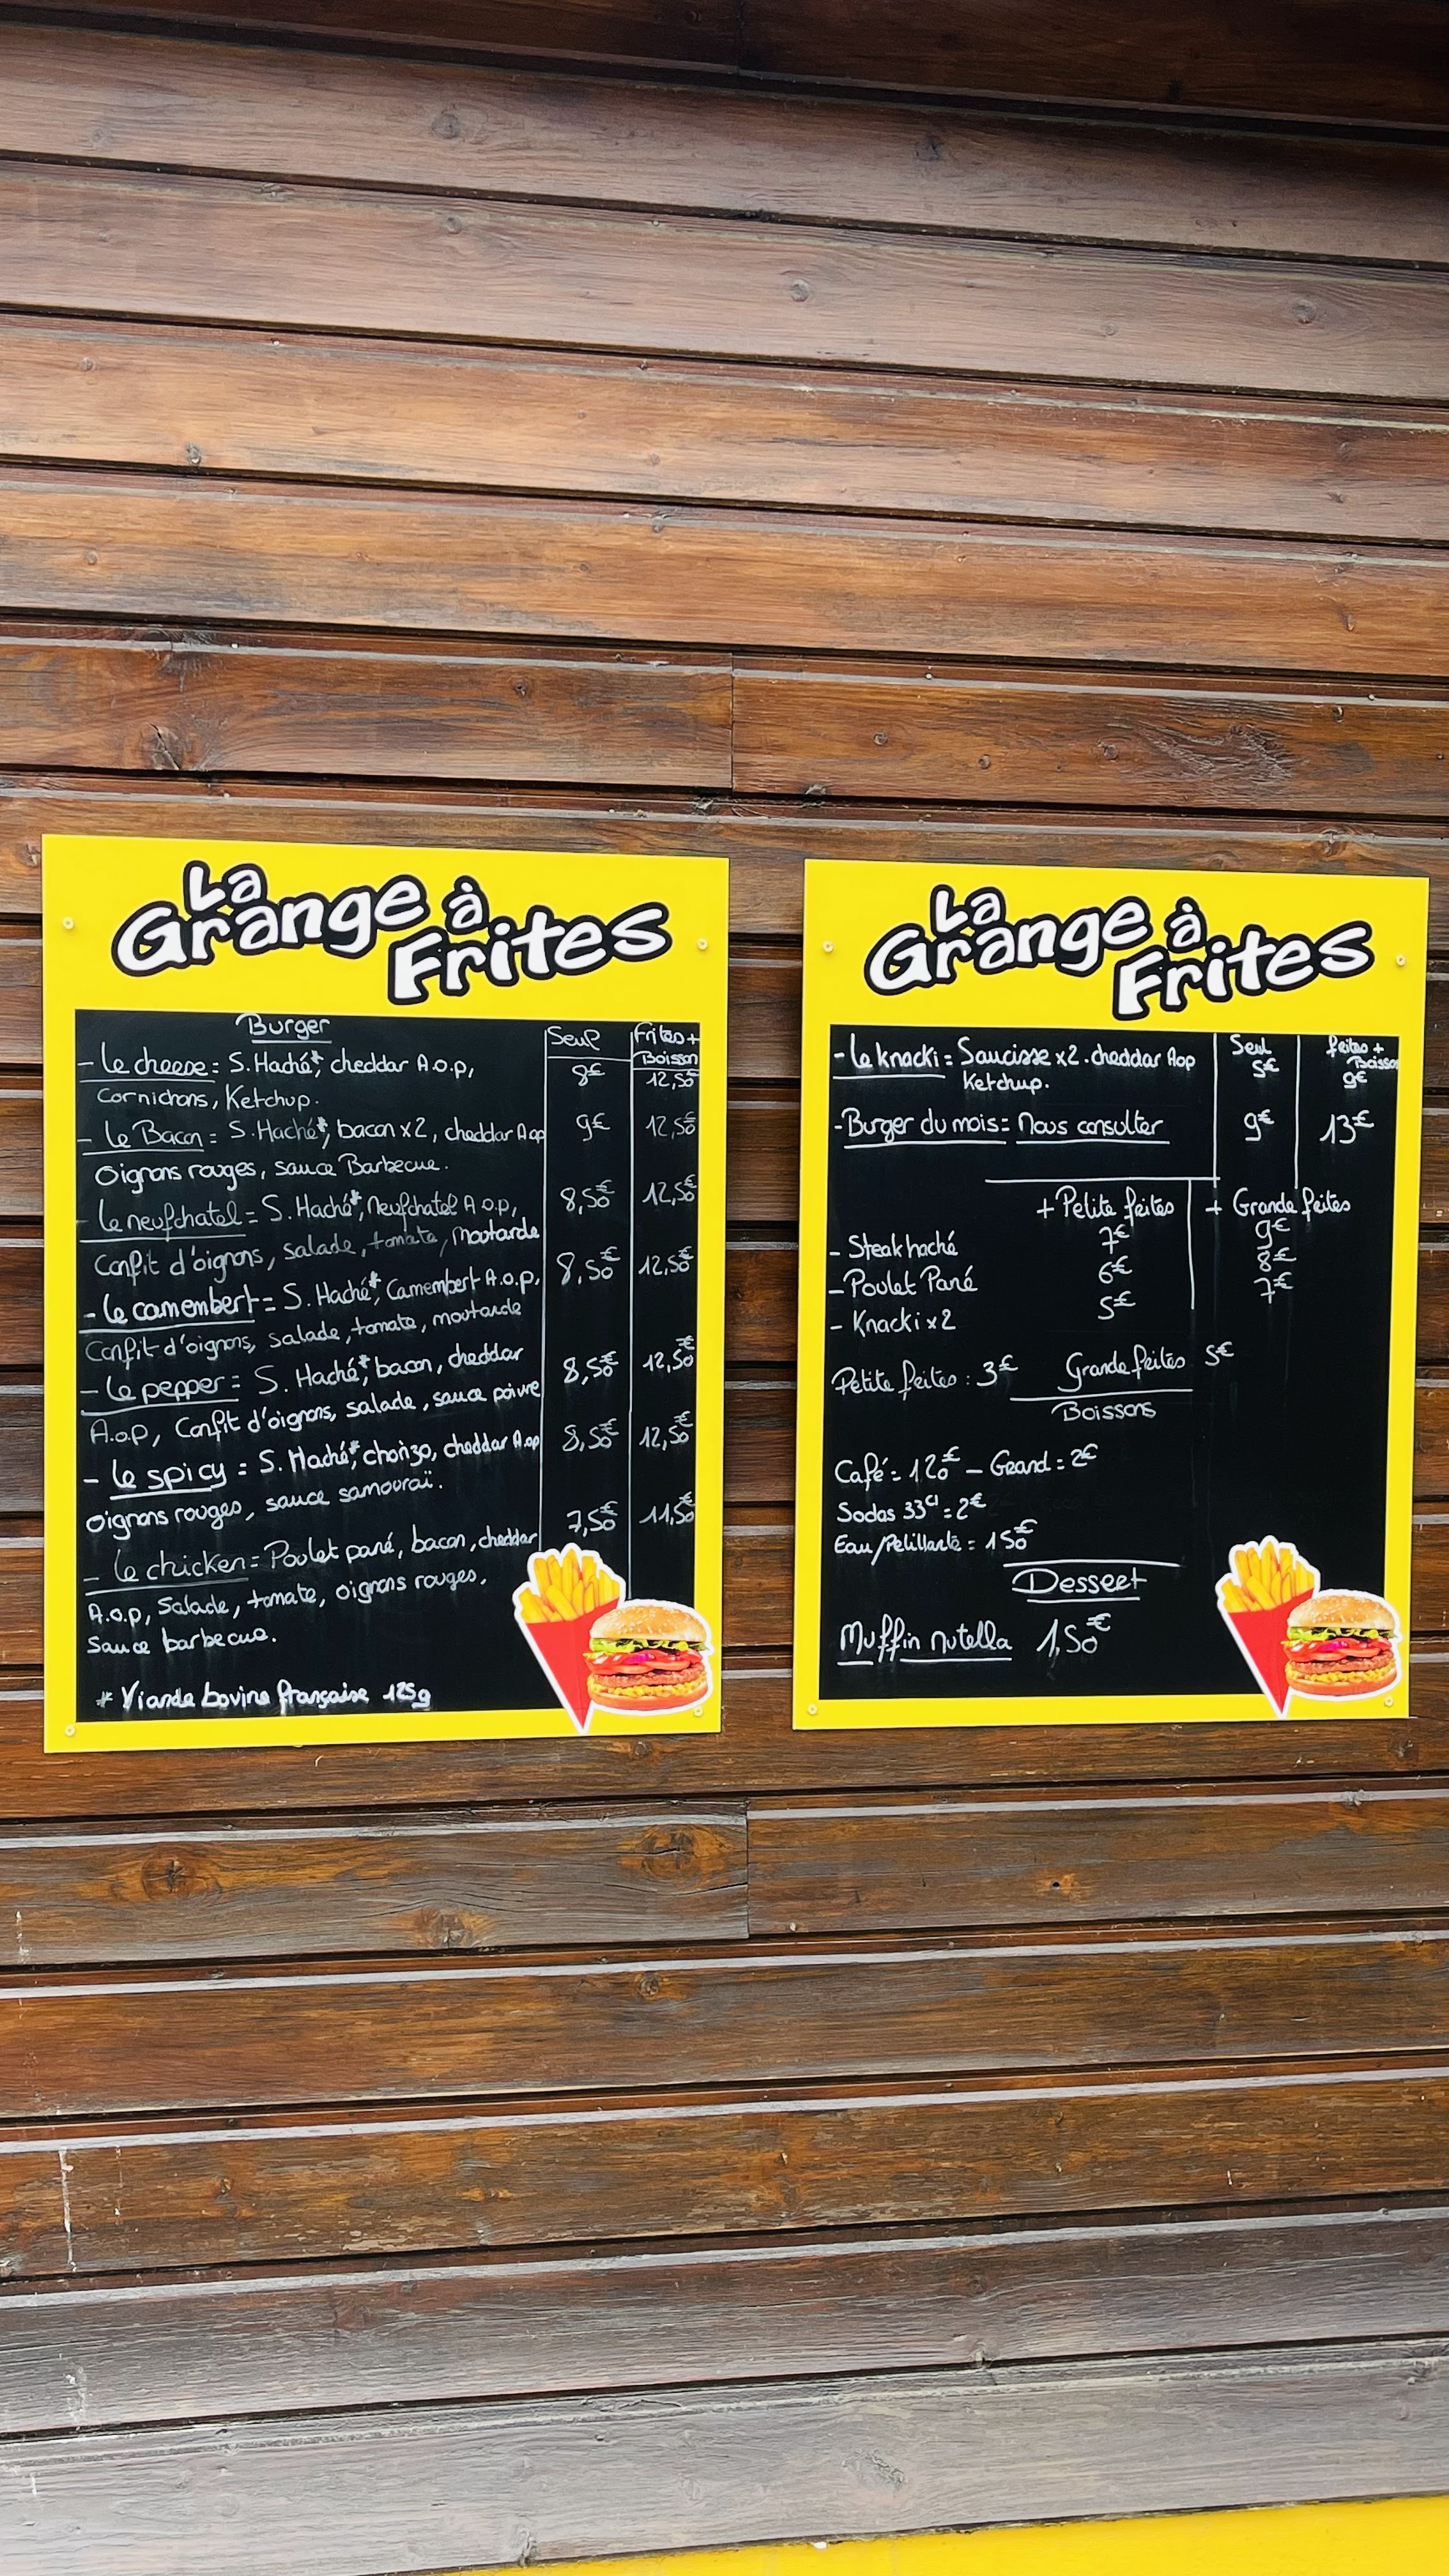 La
Grange à
Frites
Burger Seul Frites + Boisson
- Le cheese = S. Haché*, cheddar A.o.p, 8€ 12,50€
Cornichons, Ketchup.
- Le Bacon = S. Haché*, bacon x2, cheddar Aop 9€ 12,50€
Oignons rouges, sauce Barbecue.
- Le neufchatel = S. Haché*, Neufchatel A.o.p, 8,50€ 12,50€
Confit d'oignons, salade, tomate, moutarde
- Le camembert = S. Haché*, Camembert A.o.p, 8,50€ 12,50€
Confit d'oignons, salade, tomate, moutarde
- Le pepper = S. Haché*, bacon, cheddar 8,50€ 12,50€
A.o.p, Confit d'oignons, salade, sauce poivre
- Le spicy = S. Haché*, chorizo, cheddar A.op 8,50€ 12,50€
oignons rouges, sauce samouraï.
- Le chicken = Poulet pané, bacon, cheddar 7,50€ 11,50€
A.o.p, Salade, tomate, oignons rouges,
Sauce barbecue.
* Viande bovine française 125g
La
Grange à
Frites
Seul frites + Boisson
- Le knacki = Saucisse x2. cheddar Aop 5€ 9€
Ketchup.
- Burger du mois = Nous consulter 9€ 13€
+ Petite frites + Grande frites
- Steak haché 7€ 9€
- Poulet Pané 6€ 8€
- Knacki x2 5€ 7€
Petite frites : 3€ Grande frites 5€
Boissons
Café = 1 20€ - Grand = 2€
Sodas 33cl = 2€
Eau/Petillante = 1 50€
Dessert
Muffin nutella 1,50€